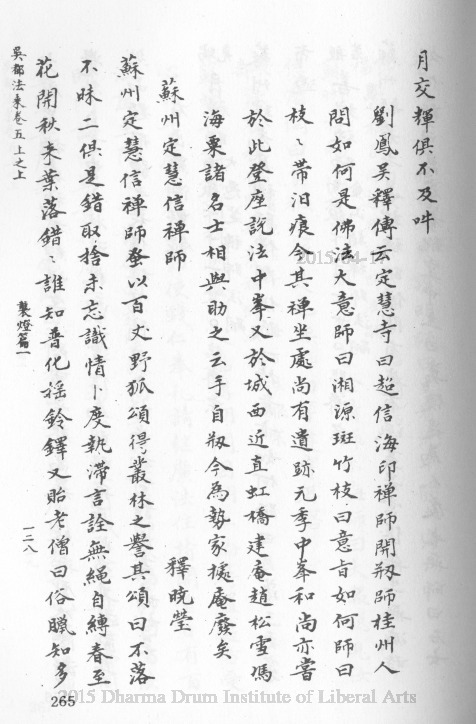 月交輝俱不及吽
劉鳳吳釋傳云定慧寺曰超信海印禪師開刱師桂州人
問如何是佛法大意師曰湘源斑竹枝曰意旨如何師曰
枝〻帶泪痕今其禪坐處尚有遺跡元季中峯和尚亦嘗
於此登座說法中峯又於城西近直虹橋建庵趙松雪馮
海粟諸名士相與助之云手自刱今為勢家據庵廢矣
蘇州定慧信禪師
釋曉瑩
蘇州定慧信禪師蚤以百丈野狐頌得叢林之譽其頌曰不落
不昧二俱是錯取捨未忘識情卜度執滯言詮無繩自縛春至
花開秋來葉落錯〻誰知普化搖鈴鐸又貽老僧曰俗臘知多
吳都法乘卷五上之上
襲燈篇一
一二八
265
2015/04/17
2015 Dharma Drum Institute of Liberal Arts